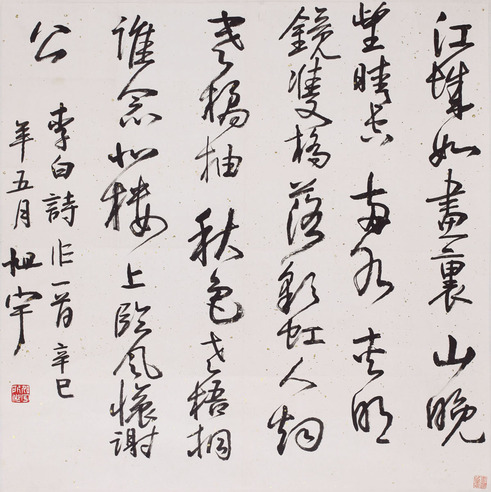 江城如畫裏山晚
望晴空兩水夾明
鏡雙橋落彩虹人烟
寒橘柚秋色老梧桐
誰念北樓上臨風懷謝
公
李白詩作一首辛巳
年五月祖宇